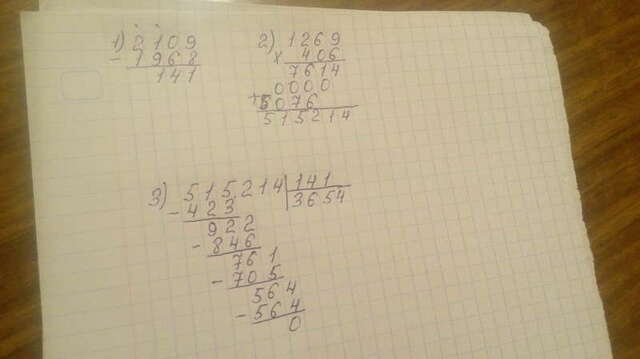 1) 2109
- 1968
141
2) 1269
x 406
7614
0000
+ 5076
515214
3) 515214 | 141
- 423 | 3654
922
- 846
761
- 705
564
- 564
0